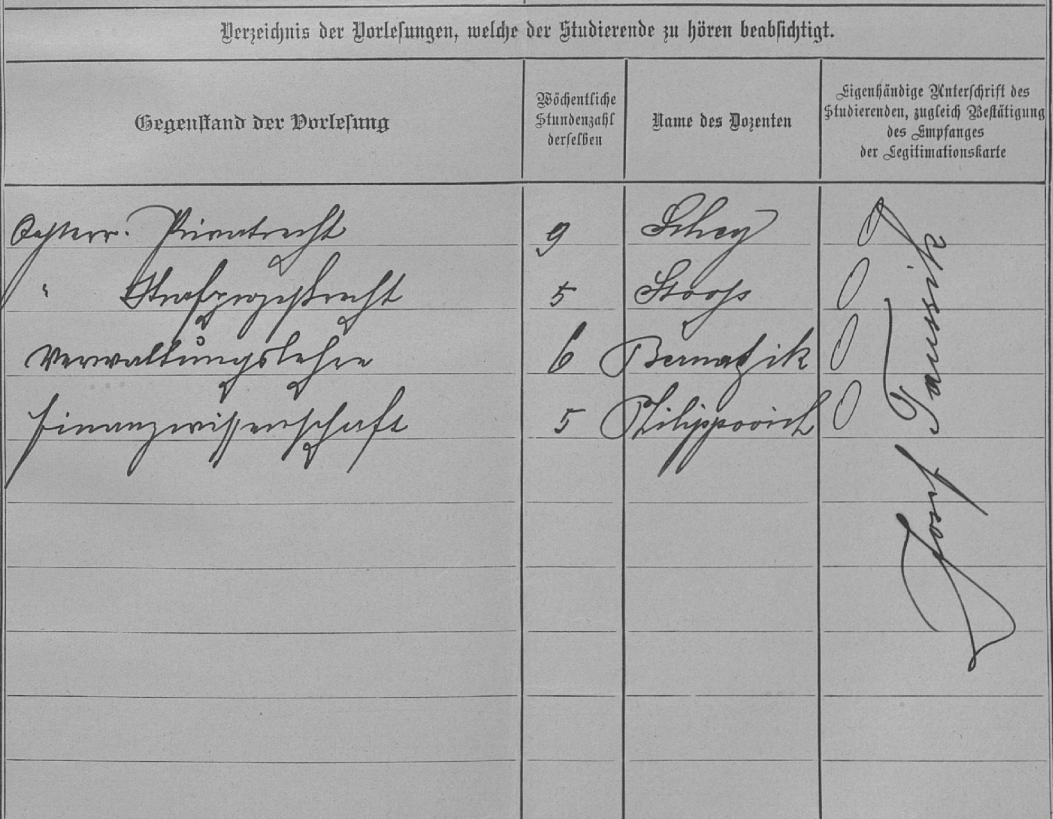 Verzeichnis der Vorlesungen, welche der Studierende zu hören beabsichtigt.
Gegenstand der Vorlesung
Wöchentliche
Stundenzahl
derselben
Name des Dozenten
Eigenhändige Unterschrift des
Studierenden, zugleich Bestätigung
des Empfanges
der Legitimationskarte
Oesterr. Privatrecht 9 Schey
" Strafprozeßrecht 5 Stooß
Verwaltungslehre 6 Bernatzik
Finanzwissenschaft 5 Philippovich
Josef Taussik